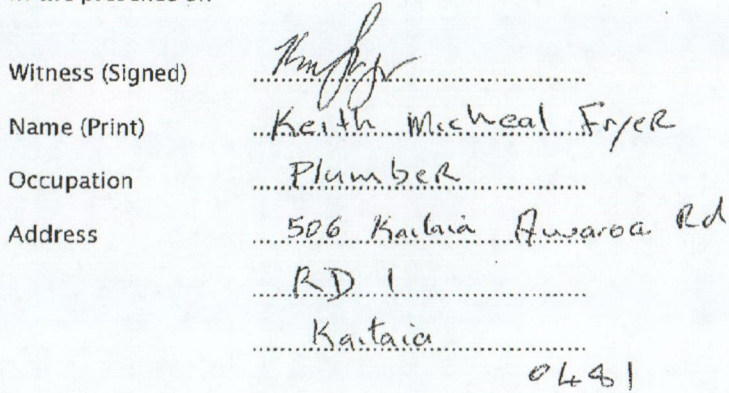 Witness (Signed)
Name (Print) Keith Micheal Fryer
Occupation Plumber
Address 506 Kaitaia Awaroa Rd
RD 1
Kaitaia
0481